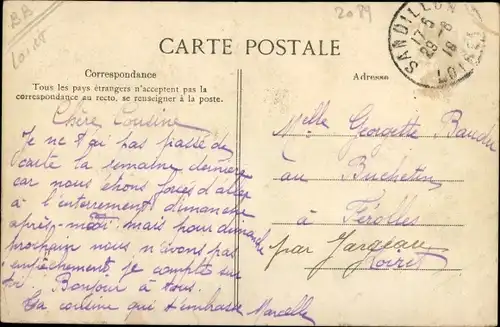 BB
Loiret
2089
CARTE POSTALE
SANDILLON
17 5
28 - 8
18
LOIRET
Correspondance
Adresse
Tous les pays étrangers n'acceptent pas la
correspondance au recto, se renseigner à la poste.
Chère Cousine
Je ne t'ai pas passé de
la semaine dernière
car nous étions forcés d'aller
à l'enterrement dimanche
après-midi, mais pour dimanche
prochain nous n'avons pas
empêchement, je compte sur
toi. Bonjour à tous.
Ta cousine qui t'embrasse Marcelle
Melle Georgette Baudu
au Buchetin
à Férolles
par Jargeau
Loiret